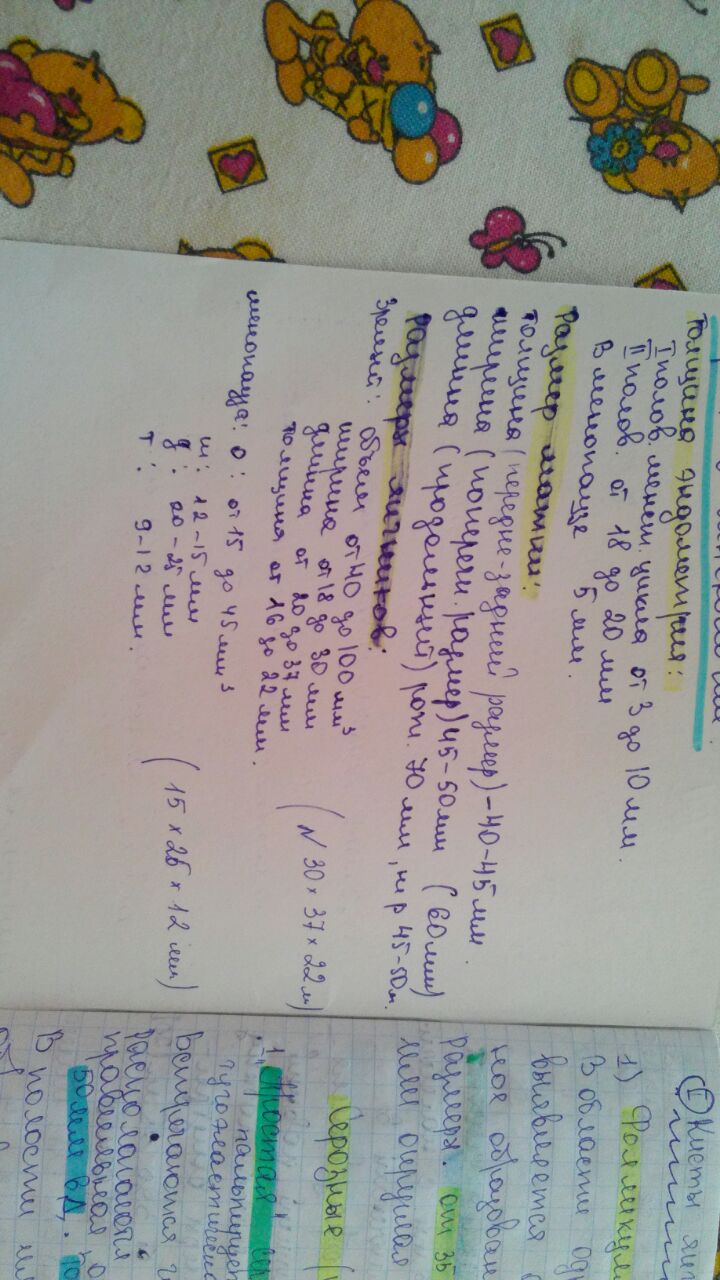 Толщина эндометрия:
I полов. менст. цикла от 3 до 10 мм.
II полов. от 18 до 20 мм
В менопаузе 5 мм.
Размер матки:
толщина (передне-задний размер) - 40-45 мм.
ширина (попереч. размер) 45-50 мм (60 мм)
длина (продольный) рож. 70 мм, н/р 45-50 м.
Размеры яичников:
Зрелый: объем от 40 до 100 мм³
ширина от 18 до 30 мм
длина от 20 до 37 мм
толщина от 16 до 22 мм.
(N 30 × 37 × 22 м)
менопауза: о: от 15 до 45 мм³
ш: 12-15 мм
д: 20-25 мм
т: 9-12 мм.
(15 × 26 × 12 мм)
I Кисты
1) Фолликул
В области од
выявляется
ное образован
размер. от 35
или округлая
Серозные
Простая
пальпирует
тугоэластическ
Встречаются
располагаются
правильная
50 мм в д.
В полости